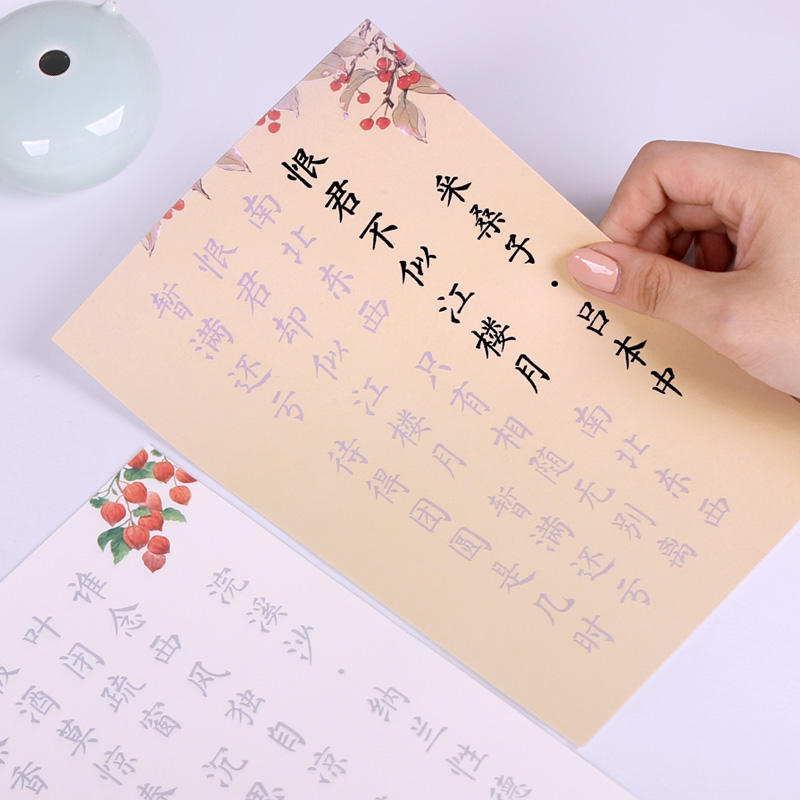 采桑子·吕本中
恨君不似江楼月 南北东西
南北东西 只有相随无别离
恨君却似江楼月 暂满还亏
暂满还亏 待得团圆是几时
浣溪沙·纳兰性德
谁念西风独自凉
叶闭疏窗 沉思
被酒莫惊春
茶香